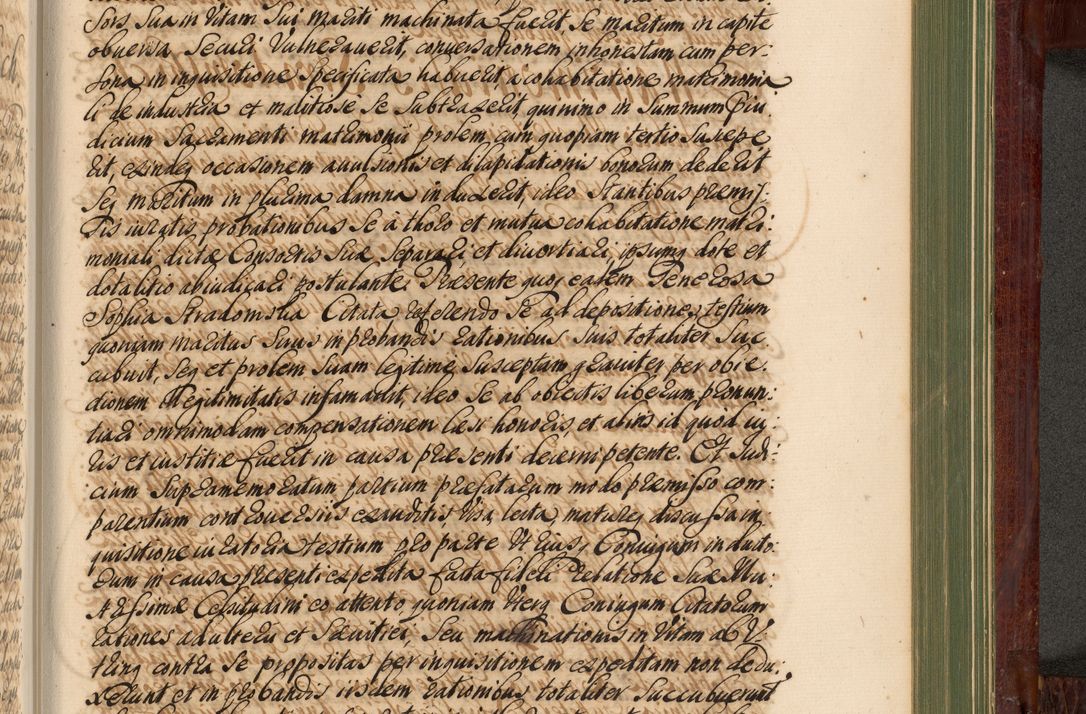 sors sua in Vitam Sui mariti machinata fuerit, Se maritum in capite
obversa Securi Vulneraverit, conversationem inhonestam cum per:
sona in inquisitione specificata habuerit, a cohabitatione matrimonia
li de industria et malitiose se subtraxerit, quinimo in Summum prau
dicium Sacramenti matrimonii prolem cum quopiam tertio suscepe
rit, exindeq occasionem avulsionis et dilapidationis bonorum dederit
Seq maritum in plurima damna induxerit, ideo Stantibus præmis:
sis iuratis probationibus Se à thoro et mutua cohabitatione matri:
moniali dictæ Consortis Suæ separari et divortiari, ipsamq dote et
dotalitio abiudicari postulante. Præsente quoq eadem Generosa
Sophia Stradomska Citata referendo Se ad depositiones testium
quoniam maritus Suus in probandis rationibus Suis totaliter Suc:
cubuit, Seq et prolem Suam legitime Susceptam graviter per obie:
ctionem illegitimitatis infamavit, ideo Se ab obiectis liberam pronun:
tiari omnimodam compensationem læsi honoris, et alias id quod iu:
ris et iustitiæ fuerit in causa præsenti decerni petente. Et Judi:
cium Supramemoratum partium præfatarum modo præmisso com:
parentium controversiis exauditis Visa, lecta, matureq discussa in
quisitione iuratoria testium pro parte Utriusq Coniugum inducto:
rum in causa præsenti expedita facta fideli relatione Suæ Illu:
strissimæ Celsitudini eo attento, quoniam Uterq Coniugum Citatorum
rationes adulterii et Sævitiei, Seu machinationis in Vitam ab U:
trinq contra Se propositas per inquisitionem expeditam non dedu:
xerunt et in probandis iisdem rationibus totaliter Succubuerunt